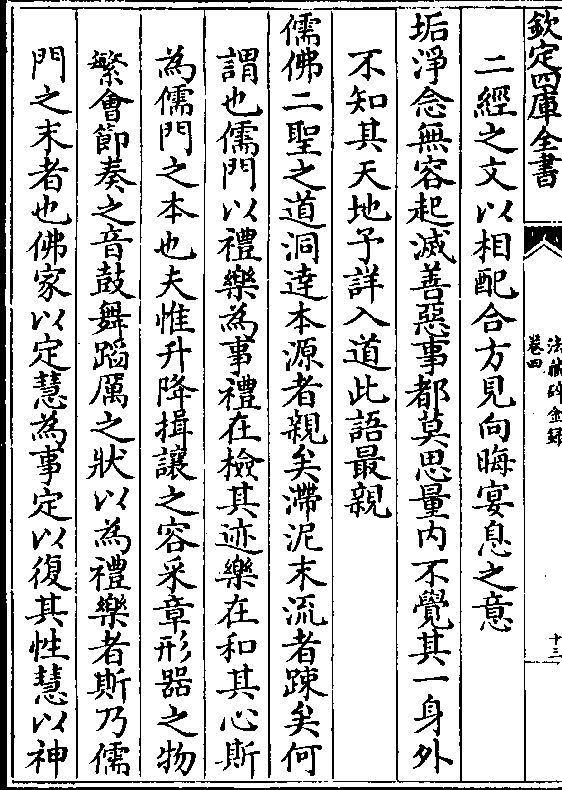 欽定四庫全書
法藏碎金録
卷四
十三
二經之文以相配合方見向晦宴息之意
垢淨念無容起滅善惡事都莫思量内不覺其一身外
不知其天地予詳入道此語最親
儒佛二聖之道洞達本源者親矣滯泥末流者踈矣何
謂也儒門以禮樂為事禮在檢其迹樂在和其心斯
為儒門之本也夫惟升降揖讓之容采章形器之物
繁會節奏之音鼓舞蹈厲之狀以為禮樂者斯乃儒
門之末者也佛家以定慧為事定以復其性慧以神